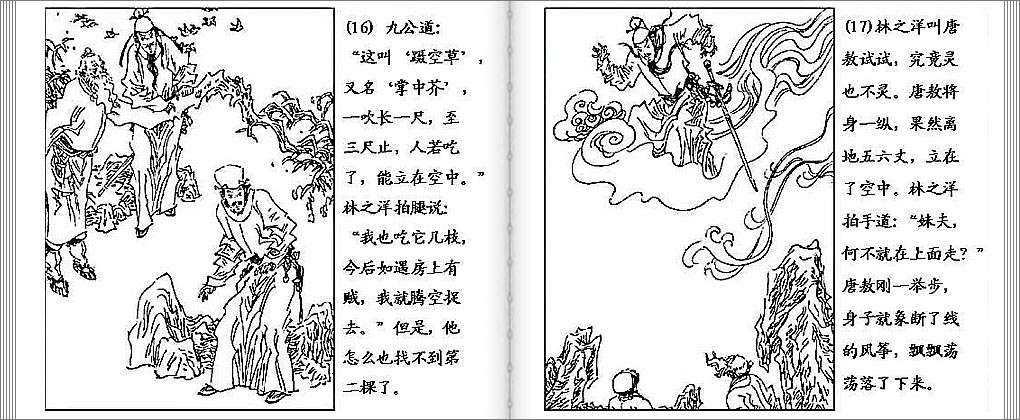 (16) 九公道：
“这叫‘蹑空草’，
又名‘掌中芥’，
一吹长一尺，至
三尺止，人若吃
了，能立在空中。”
林之洋拍腿说：
“我也吃它几枝，
今后如遇房上有
贼，我就腾空捉
去。”但是，他
怎么也找不到第
二棵了。
(17)林之洋叫唐
敖试试，究竟灵
也不灵。唐敖将
身一纵，果然离
地五六丈，立在
了空中。林之洋
拍手道：“妹夫，
何不就在上面走？”
唐敖刚一举步，
身子就象断了线
的风筝，飘飘荡
荡落了下来。